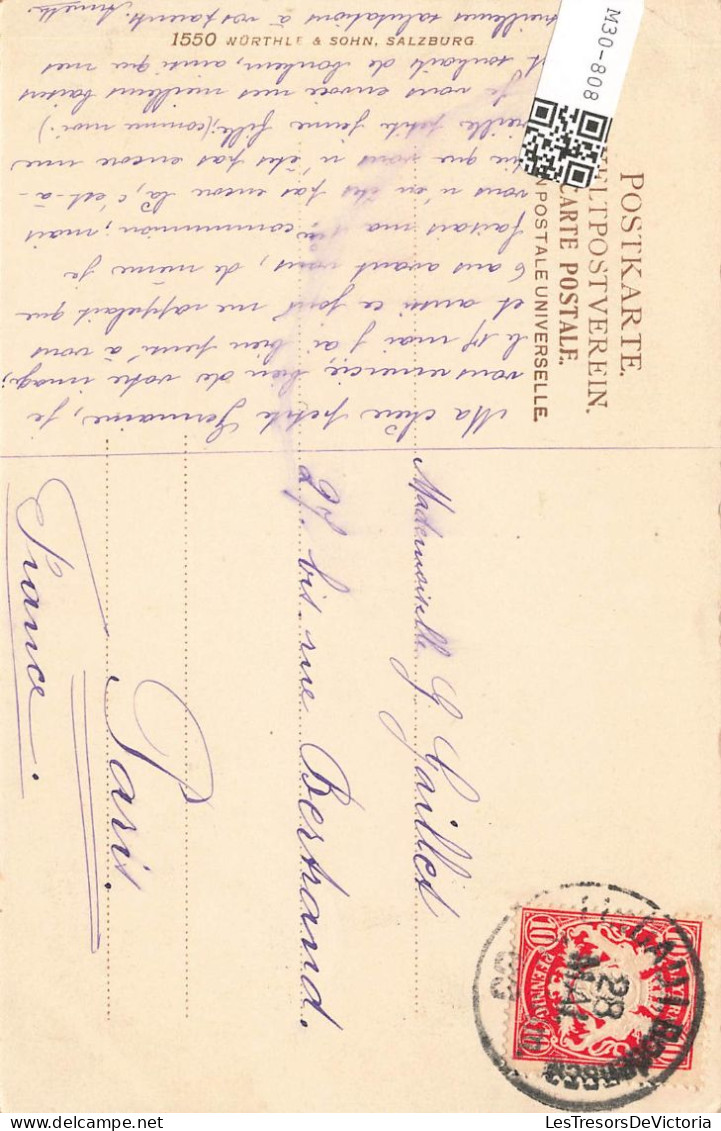 POSTKARTE.
WELTPOSTVEREIN.
CARTE POSTALE.
UNION POSTALE UNIVERSELLE.
M30-808
Ma chère petite Germaine, je
vous remercie bien de votre image;
le 14 mai j'ai bien pensé à vous
et aussi ce jour me rappelait que
6 ans avant vous, de même je
faisais ma communion; mais
vous n'en êtes pas encore là, c'est-à-
que vous n'êtes pas encore une
vieille petite jeune fille, (comme moi.)
Je vous envoie mes meilleurs baisers
et souhaits de bonheur, ainsi que mes
meilleures salutations à vos parents. Annette
1550 WÜRTHLE & SOHN, SALZBURG
Mademoiselle G. Gaillet
27. bis. rue Bertrand.
Paris.
France.
10 10
BAYERN
PFENNIG
28
MAI
https://www.delcampe.net
LesTresorsDeVictoria